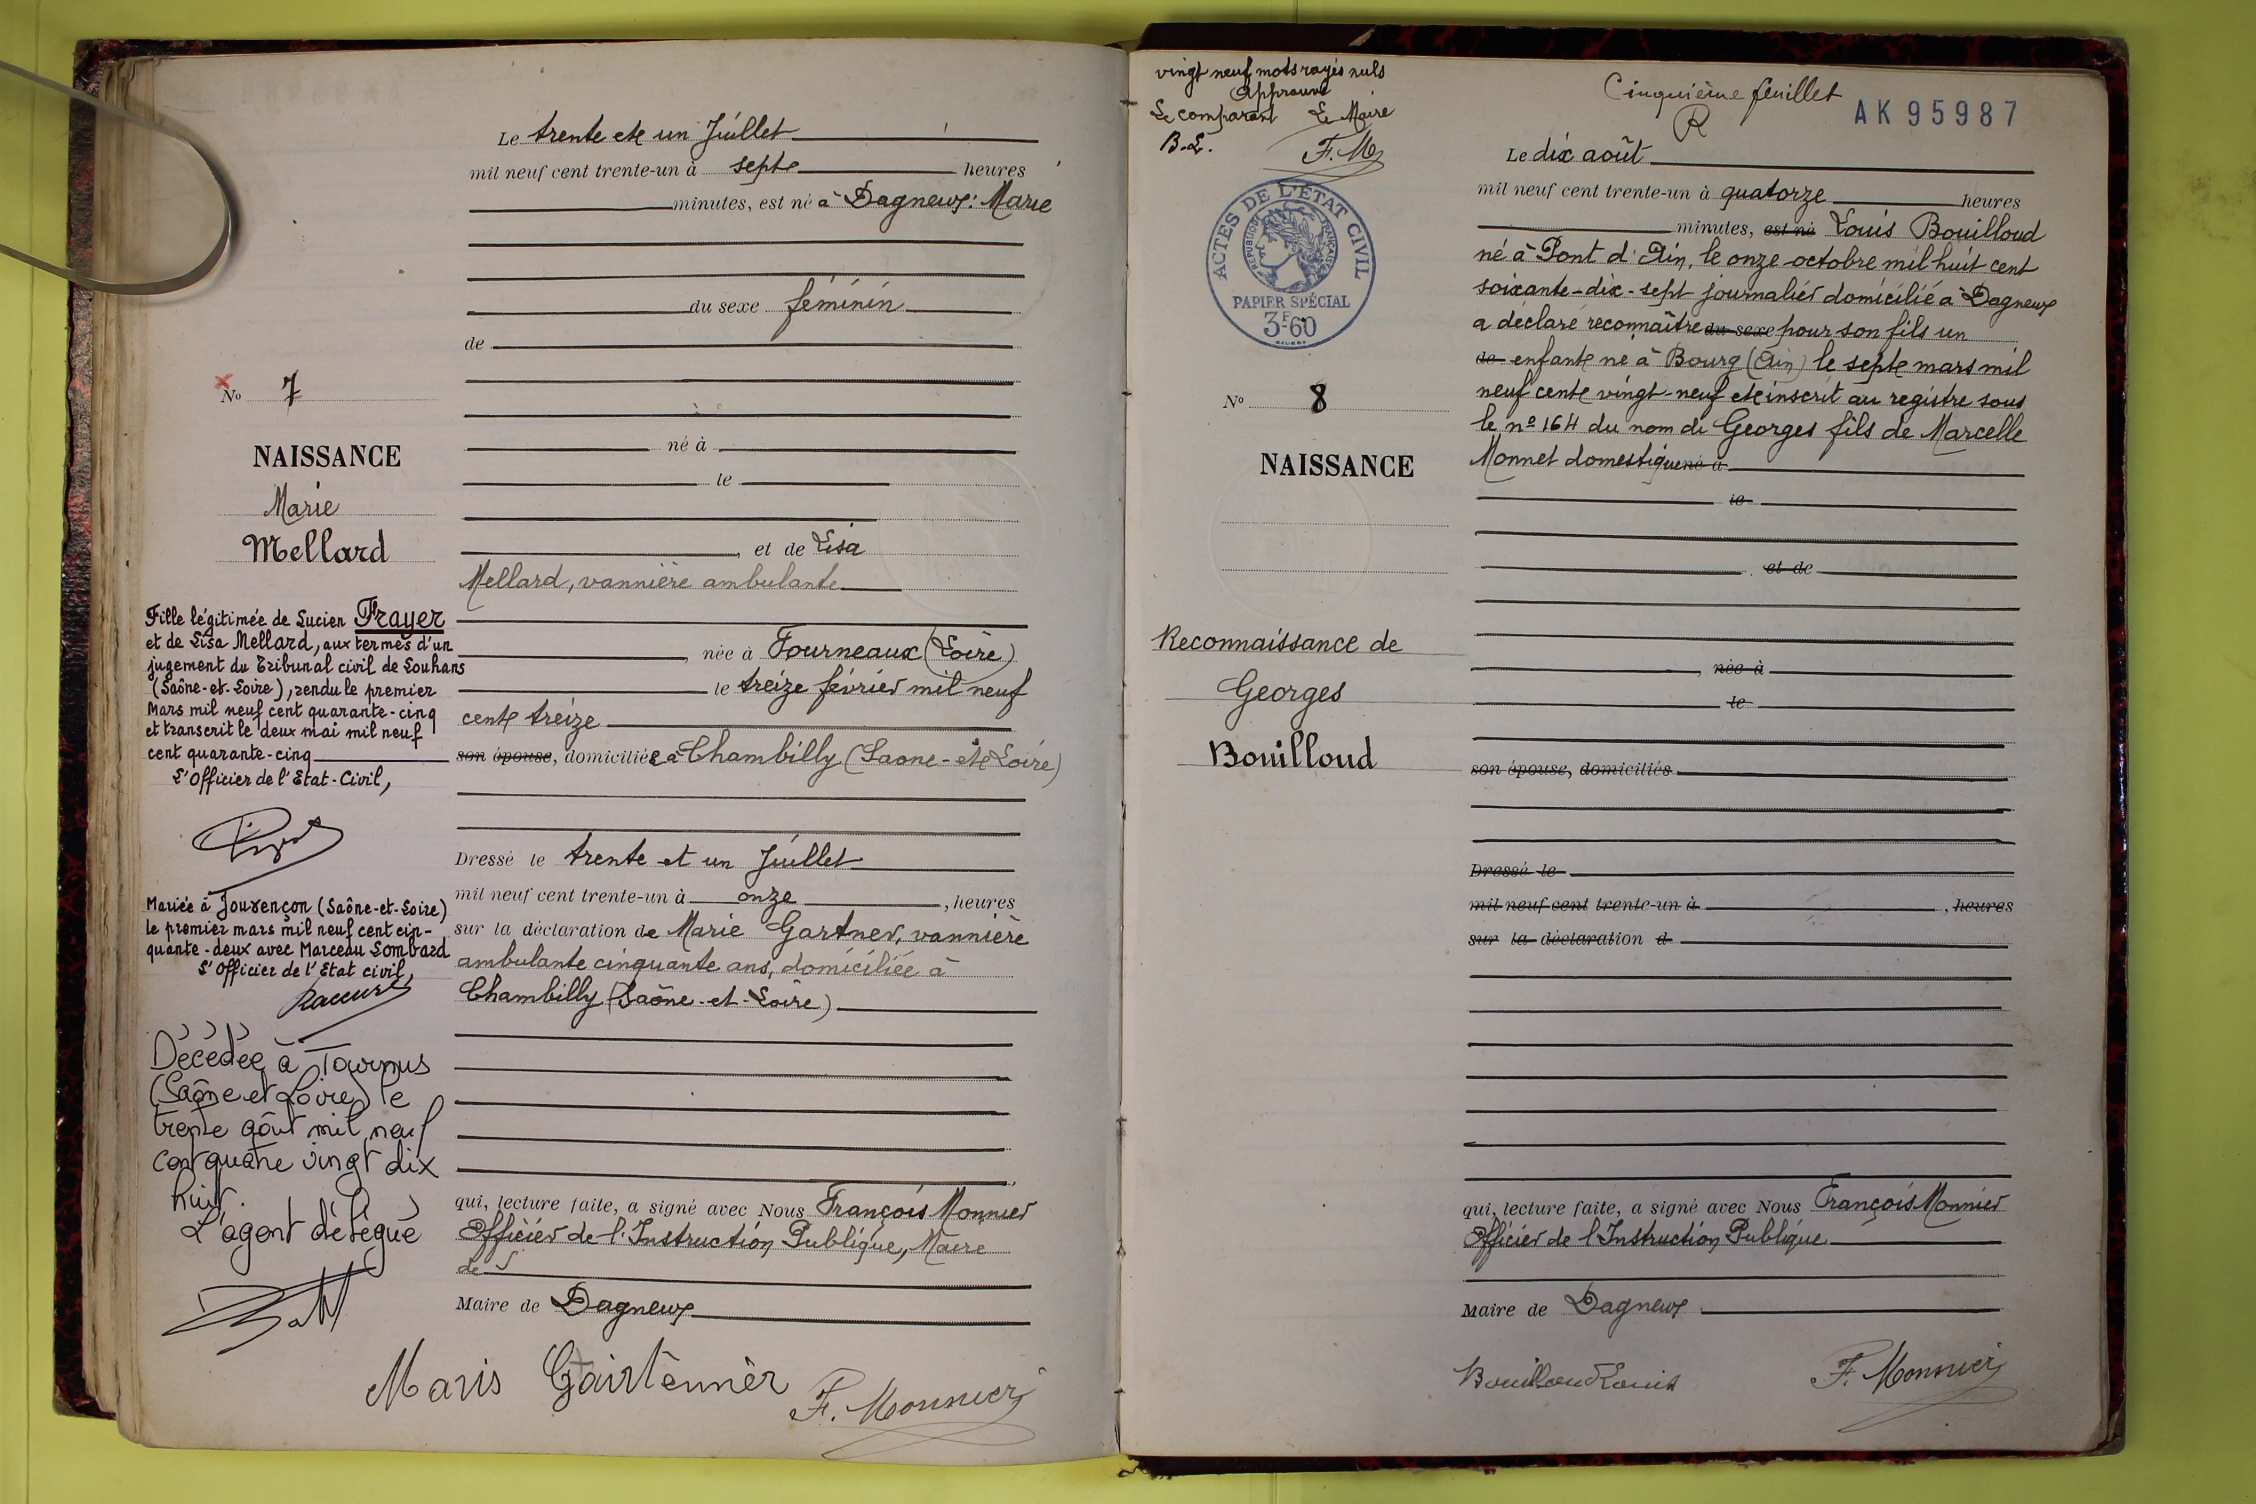 Le trente et un Juillet
mil neuf cent trente-un à sept heures
minutes, est né à Dagneux: Marie
du sexe féminin
de
No 7
né à
NAISSANCE
le
Marie
Mellard
, et de Lisa
Mellard, vannière ambulante
née à Fourneaux (Loire)
le treize février mil neuf
cent treize
son épouse, domiciliée à Chambilly (Saone-et-Loire)
Dressé le trente et un Juillet
mil neuf cent trente-un à onze , heures
sur la déclaration de Marie Gartner, vannière
ambulante cinquante ans, domiciliée à
Chambilly (Saône-et-Loire)
qui, lecture faite, a signé avec Nous François Monnier
Officier de l'Instruction Publique, Maire
de
Maire de Dagneux
Maris Gairtennèr F. Monnier
Fille légitimée de Lucien Frayer
et de Lisa Mellard, aux termes d'un
jugement du Tribunal civil de Louhans
(Saône-et-Loire), rendu le premier
Mars mil neuf cent quarante-cinq
et transcrit le deux mai mil neuf
cent quarante-cinq
L'Officier de l'Etat-Civil,
Mariée à Jouvençon (Saône-et-Loire)
le premier mars mil neuf cent cin-
quante-deux avec Marceau Lombard
L'Officier de l'Etat civil,
Décédée à Tournus
(Saône et Loire) le
trente août mil neuf
cent quatre vingt dix
huit.
L'agent délégué
vingt neuf mots rayés nuls
Approuvé
Le comparant Le Maire
B.L. F.M
Cinquième feuillet
R
AK 95987
ACTES DE L'ETAT CIVIL
REPUBLIQUE FRANÇAISE
PAPIER SPÉCIAL
3F60
Le dix août
mil neuf cent trente-un à quatorze heures
minutes, est né Louis Bouilloud
né à Pont d'Ain, le onze octobre mil huit cent
soixante-dix-sept journalier domicilié à Dagneux
a déclaré reconnaître du sexe pour son fils un
de enfant né à Bourg (Ain) le sept mars mil
neuf cent vingt-neuf et inscrit au registre sous
le nº 164 du nom de Georges fils de Marcelle
Monnet domestique né à
No 8
NAISSANCE
le
et de
Reconnaissance de
Georges
Bouilloud
, née à
le
son épouse, domiciliés
Dressé le
mil neuf cent trente-un à , heures
sur la déclaration d
qui, lecture faite, a signé avec Nous François Monnier
Officier de l'Instruction Publique
Maire de Dagneux
Bouilloud Louis F. Monnier